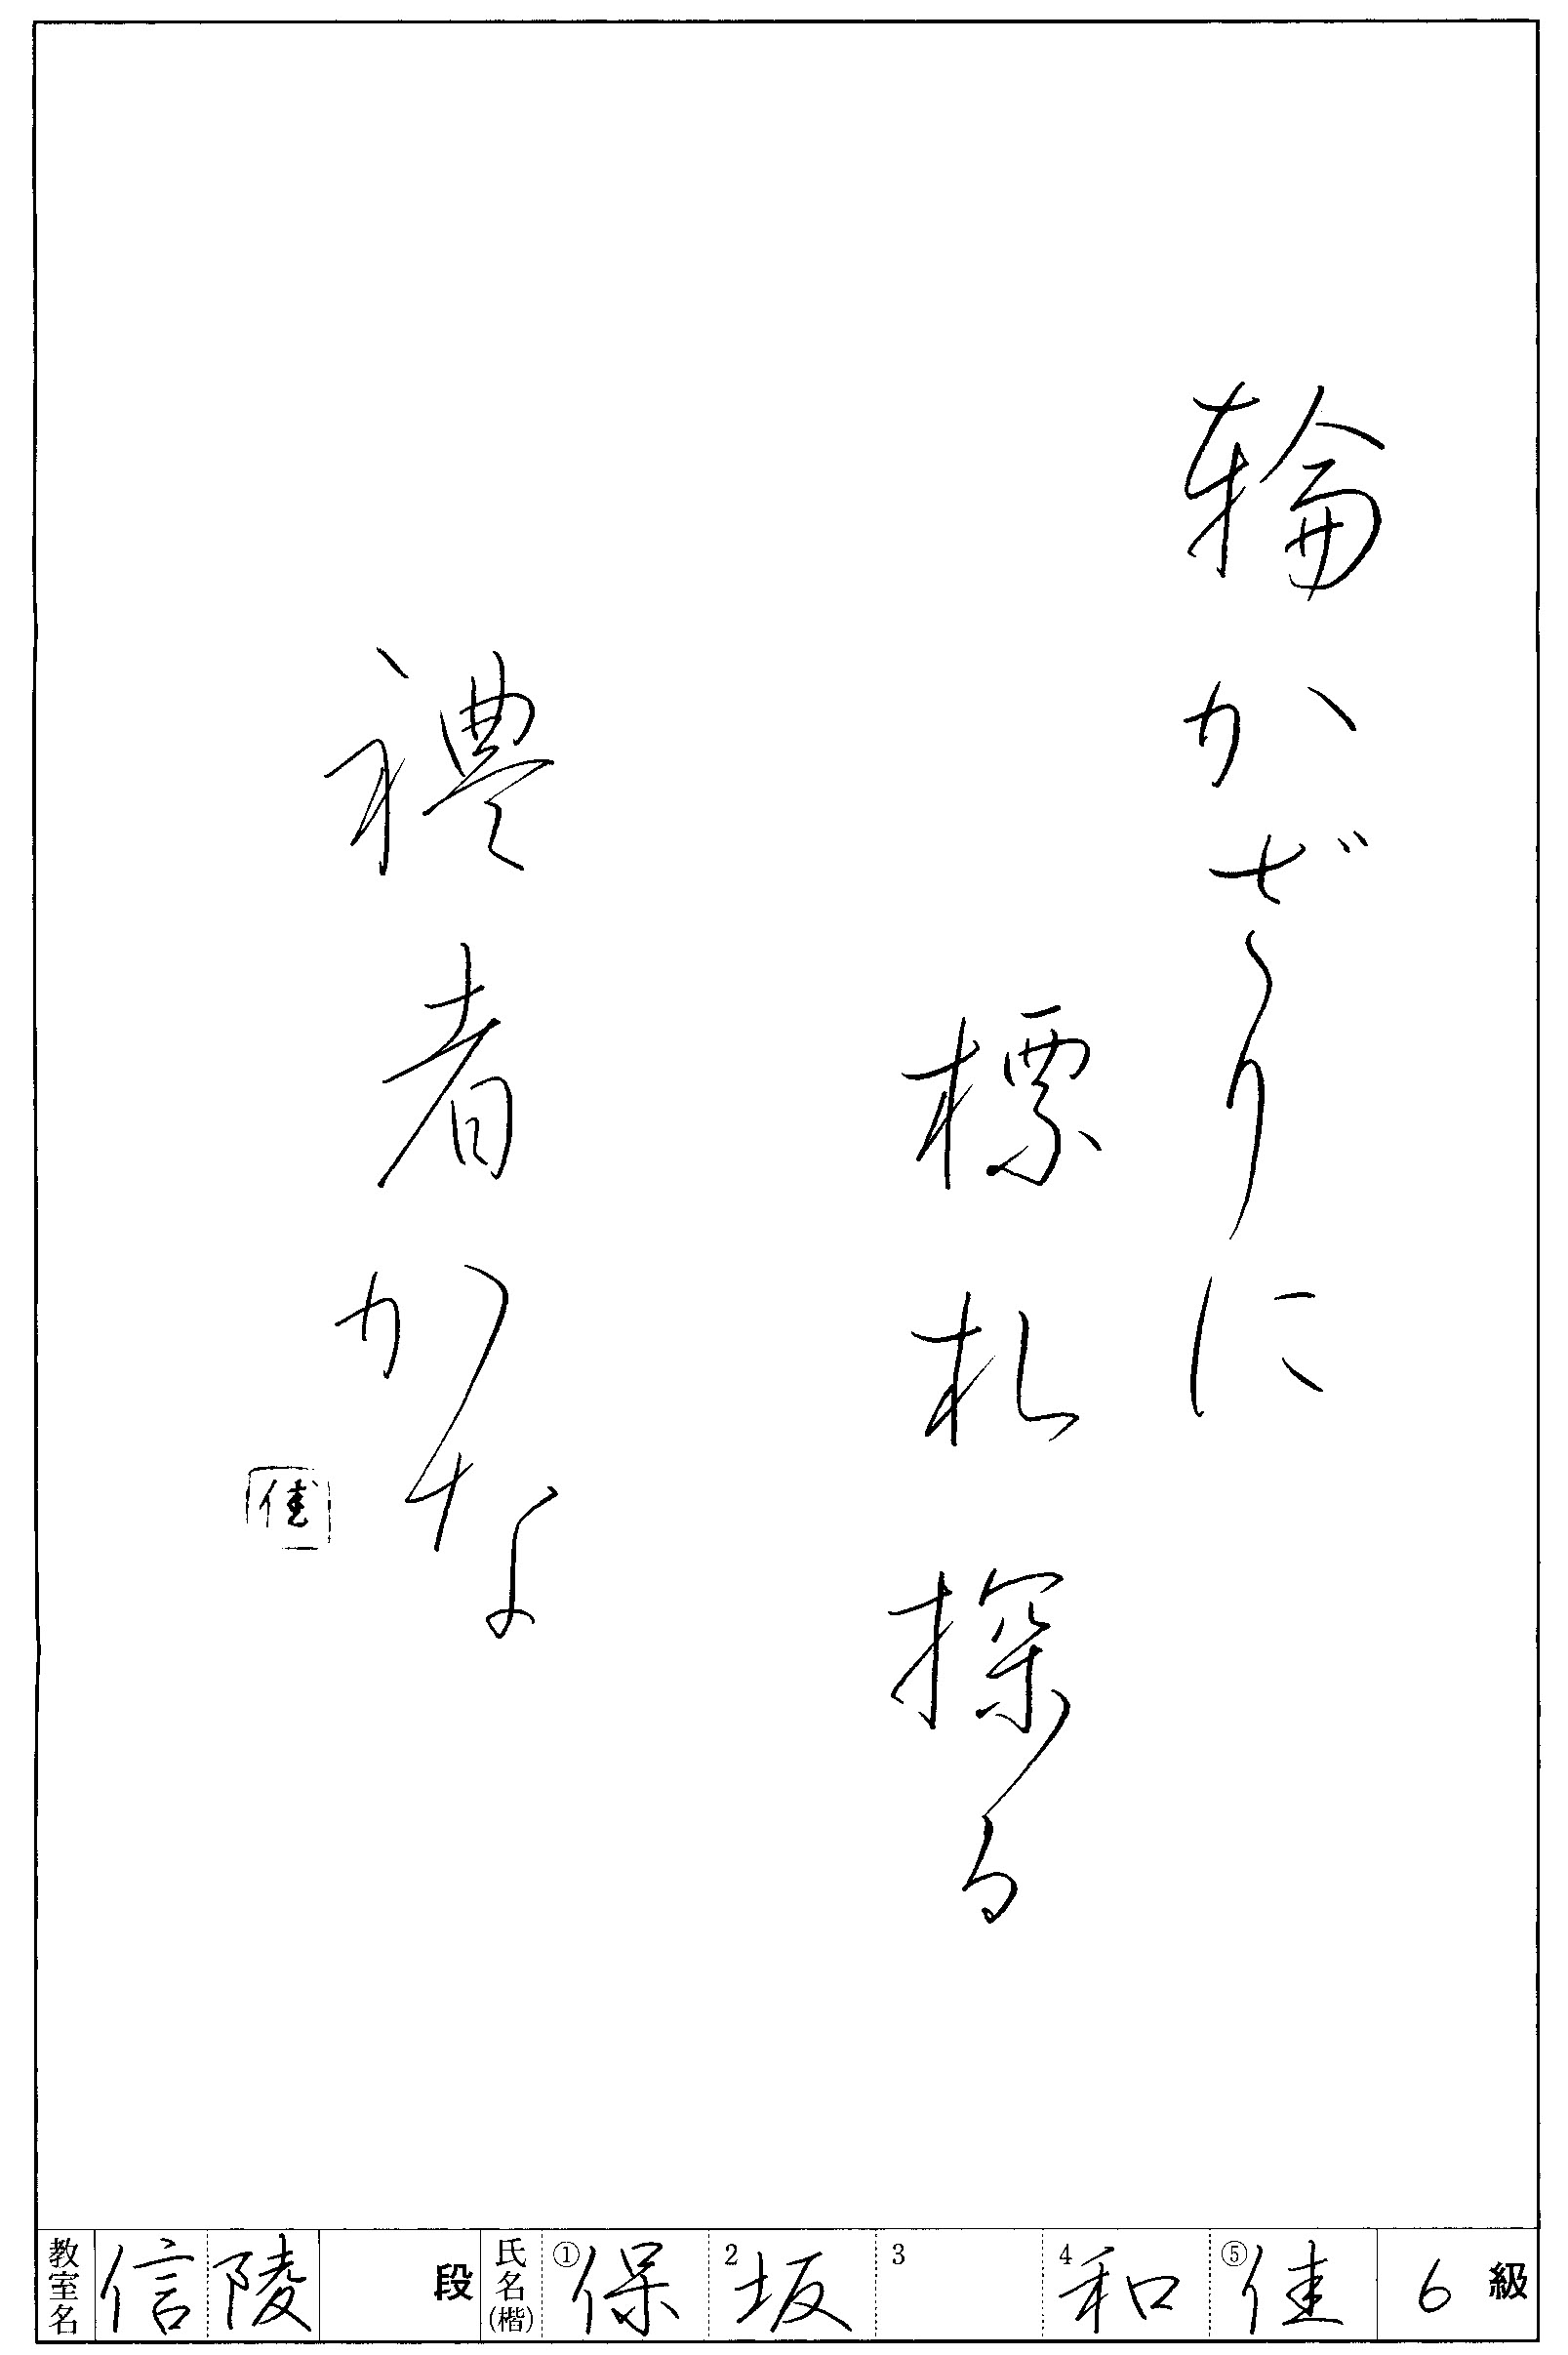 輪かざりに
標札探る
禮者かな
佳
教室名 信陵 段 氏名(楷) ①保 2坂 3 4和 ⑤佳 6級